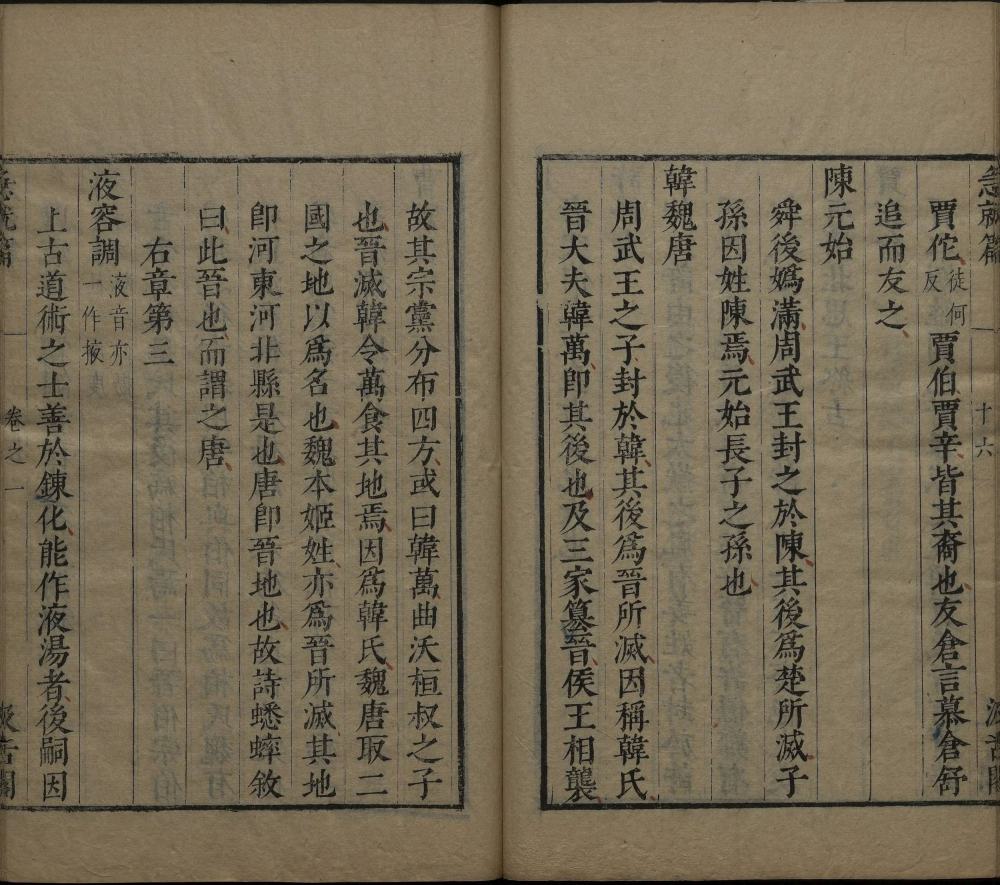 急就篇 十六 汲古閣
賈佗徒何反賈伯賈辛皆其裔也友倉言慕倉舒
追而友之
陳元始
舜後媯滿周武王封之於陳其後為楚所滅子
孫因姓陳焉元始長子之孫也
韓魏唐
周武王之子封於韓其後為晉所滅因稱韓氏
晉大夫韓萬卽其後也及三家簒晉侯王相襲
故其宗黨分布四方或曰韓萬曲沃桓叔之子
也晉滅韓令萬食其地焉因為韓氏魏唐取二
國之地以為名也魏本姬姓亦為晉所滅其地
卽河東河北縣是也唐卽晉地也故詩蟋蟀敘
曰此晉也而謂之唐
右章第三
液容調液音亦一作掖
上古道術之士善於鍊化能作液湯者後嗣因
急就篇 卷之一 汲古閣